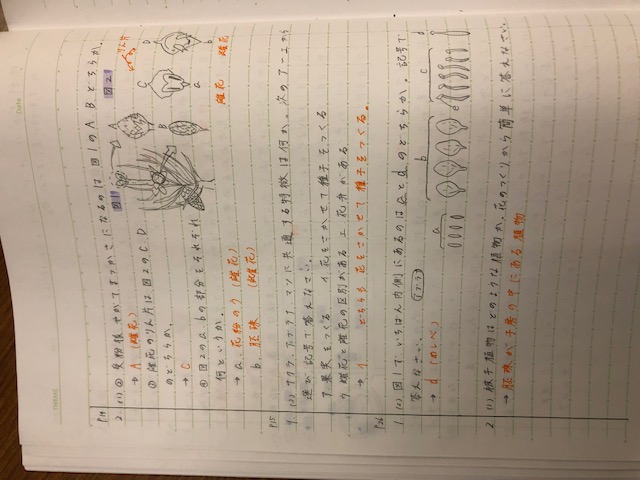 P14
2. (1) ② 受粉後やがてまつかさになるのは図1のA Bどちらか。
→ A (雌花)
③ 雌花のりん片は図2のC D
のどちらか。
→ C
④ 図2のa、bの部分をそれぞれ
何というか。
→ a. 花粉のう (雄花)
b. 胚珠 (雌花)
図1
A
B
図2
りん片
C
D
a
b
雄花
雌花
P25
1. (2) サクラ、アブラナ、マツに共通する特徴は何か。次のア〜エから
選び記号で答えなさい。
ア 果実をつくる イ 花をさかせて種子をつくる
ウ 雄花と雌花の区別がある エ 花弁がある
→ イ どちらも花をさかせて種子をつくる。
P26
1. (2) 図1で、いちばん内側にあるのはaとdのどちらか。記号で
答えなさい。
→ d (めしべ)
a
b
c
d
2. (1) 被子植物はどのような植物か。花のつくりから簡単に答えなさい。
→ 胚珠が子房の中にある植物